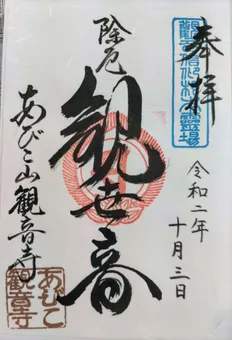 奉拝
令和二年
十月三日
除厄
観世音
あびこ山観音寺
あびこ
観音寺